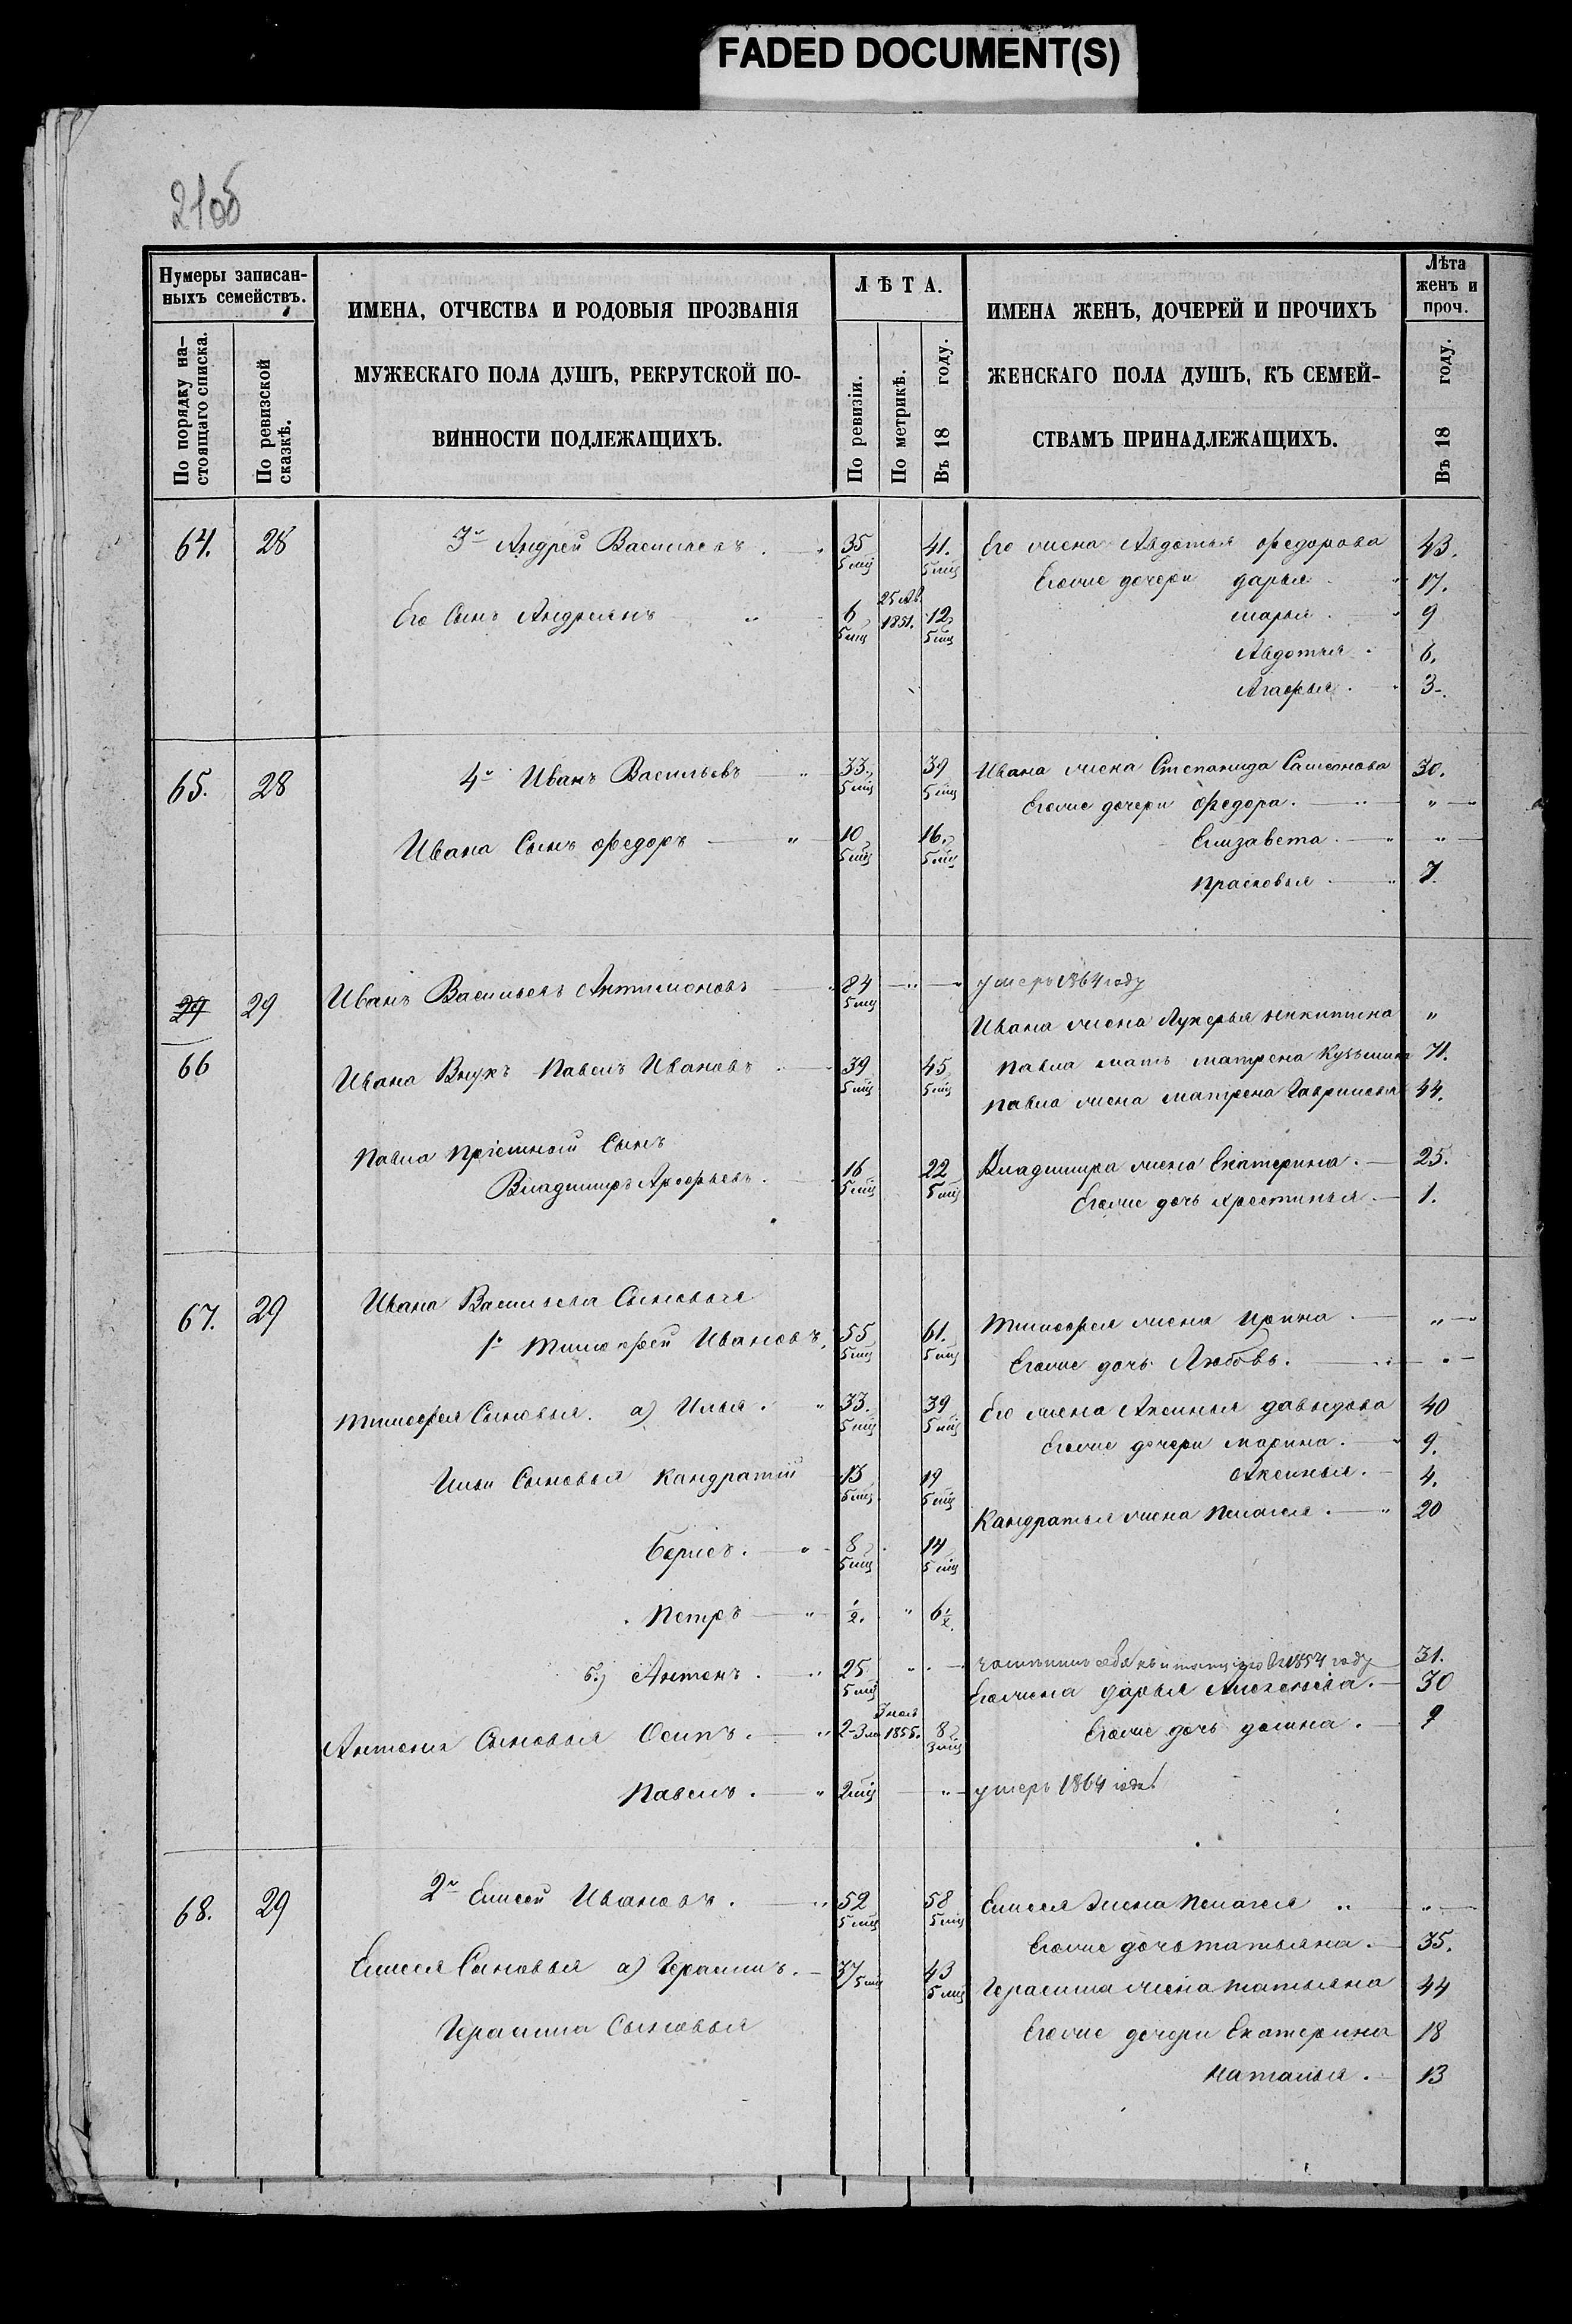 FADED DOCUMENT(S)
21об
Нумеры записан-
ныхъ семействъ.
По порядку на-
стоящаго списка.
По ревизской
сказкѣ.
ИМЕНА, ОТЧЕСТВА И РОДОВЫЯ ПРОЗВАНІЯ
МУЖЕСКАГО ПОЛА ДУШЪ, РЕКРУТСКОЙ ПО-
ВИННОСТИ ПОДЛЕЖАЩИХЪ.
ЛѢТА.
По ревизіи.
По метрикѣ.
Въ 18 году.
ИМЕНА ЖЕНЪ, ДОЧЕРЕЙ И ПРОЧИХЪ
ЖЕНСКАГО ПОЛА ДУШЪ, КЪ СЕМЕЙ-
СТВАМЪ ПРИНАДЛЕЖАЩИХЪ.
Лѣта
женъ и
проч.
Въ 18 году.
64. 28 3й Андрей Васильевъ 35 5 мц 41. 5 мц Его жена Авдотья Федорова 43.
Егоже дочери Дарья 17.
Его Сынъ Андреянъ 6 5 мц 25 Ав. 1851. 12 5 мц Марья 9
Авдотья 6.
Агафья 3.
65. 28 4й Иванъ Васильевъ 33. 5 мц 39 5 мц Ивана жена Степанида Самсонова 30.
Егоже дочери Федора. "
Ивана Сынъ Федоръ 10 5 мц 16. 5 мц Елизавета "
Прасковья 7.
29 29 Иванъ Васильевъ Антимоновъ 84 5 мц умеръ 1864 году
Ивана жена Лукерья Никитина "
66 Ивана Внукъ Павелъ Ивановъ 39 5 мц 45 5 мц Павла мать Матрена Кузьмина 71.
Павла жена Матрена Гаврилова 44.
Павла Пріемной Сынъ
Владимиръ Арефьевъ. 16 5 мц 22 5 мц Владимира жена Екатерина. 25.
Егоже дочь Хрестинья 1.
67. 29 Ивана Васильева Сыновья
1й Тимофей Ивановъ. 55 5 мц 61. 5 мц Тимофея жена Ирина "
Егоже дочь Любовь. "
Тимофея Сыновья. а) Илья. 33. 5 мц 39 5 мц Его жена Аксинья Давыдова 40
Егоже дочери Марина. 9.
Ильи Сыновья Кандратій 13 5 мц. 19 5 мц Аксинья. 4.
Кандратья жена Пелагея. 20
Борисъ. 8 5 мц 14 5 мц
Петръ ½. " 6½.
б) Антонъ. 25 5 мц 1857 году 31.
Егожена Дарья 30
Антона Сыновья Осипъ. 2-3 мц Іюль 1855. 8 3 мц Егоже дочь Домна. 9
Павелъ. 2 мц умеръ 1864 года
68. 29 2й Елисей Ивановъ. 52 5 мц 58 5 мц Елисея Жена Пелагея "
Егоже дочь Татьяна. 35.
Елисея Сыновья а) Герасимъ. 37 5 мц 43 5 мц Герасима жена Татьяна 44
Герасима Сыновья Егоже дочери Екатерина 18
Наталья. 13